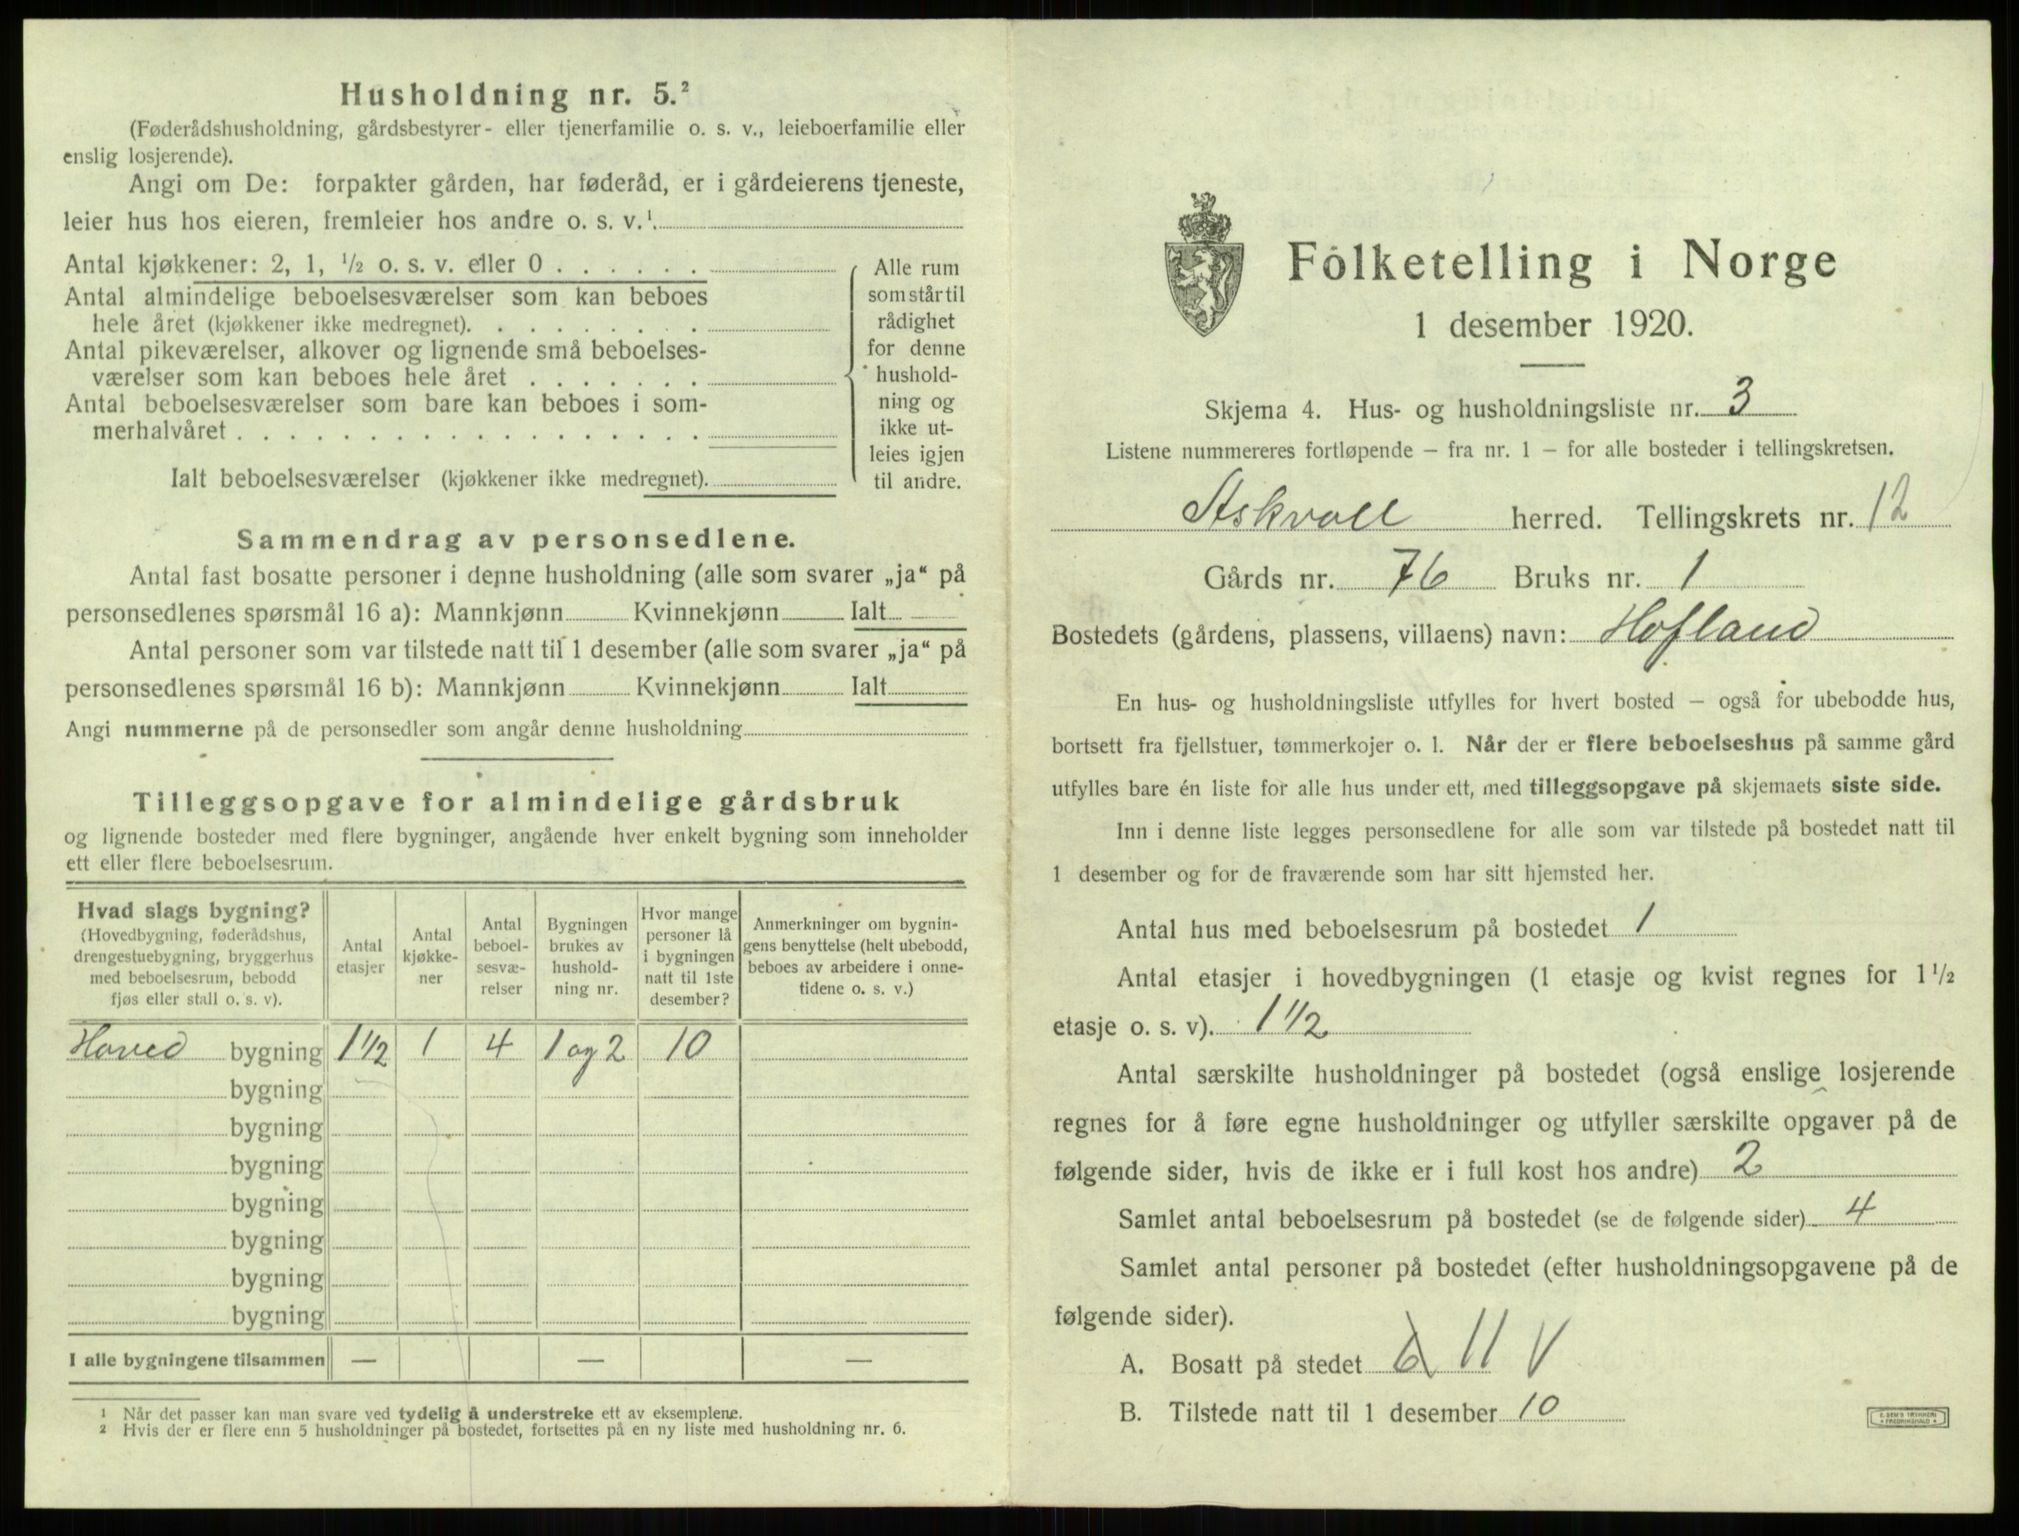 Husholdning nr. 5.²
(Føderådshusholdning, gårdsbestyrer- eller tjenerfamilie o. s. v., leieboerfamilie eller
enslig losjerende).
Angi om De: forpakter gården, har føderåd, er i gårdeierens tjeneste,
leier hus hos eieren, fremleier hos andre o. s. v.¹
Antal kjøkkener: 2, 1, ½ o. s. v. eller 0
Antal almindelige beboelsesværelser som kan beboes
hele året (kjøkkener ikke medregnet).
Antal pikeværelser, alkover og lignende små beboelses-
værelser som kan beboes hele året
Antal beboelsesværelser som bare kan beboes i som-
merhalvåret
Ialt beboelsesværelser (kjøkkener ikke medregnet).
Alle rum
som står til
rådighet
for denne
hushold-
ning og
ikke ut-
leies igjen
til andre.
Sammendrag av personsedlene.
Antal fast bosatte personer i denne husholdning (alle som svarer „ja“ på
personsedlenes spørsmål 16 a): Mannkjønn Kvinnekjønn Ialt
Antal personer som var tilstede natt til 1 desember (alle som svarer „ja“ på
personsedlenes spørsmål 16 b): Mannkjønn Kvinnekjønn Ialt
Angi nummerne på de personsedler som angår denne husholdning
Tilleggsopgave for almindelige gårdsbruk
og lignende bosteder med flere bygninger, angående hver enkelt bygning som inneholder
ett eller flere beboelsesrum.
Hvad slags bygning?
(Hovedbygning, føderådshus,
drengestuebygning, bryggerhus
med beboelsesrum, bebodd
fjøs eller stall o. s. v).
Antal
etasjer
Antal
kjøkke-
ner
Antal
beboel-
sesvæ-
relser
Bygningen
brukes av
hushold-
ning nr.
Hvor mange
personer lå
i bygningen
natt til 1ste
desember?
Anmerkninger om bygnin-
gens benyttelse (helt ubebodd,
beboes av arbeidere i onne-
tidene o. s. v.)
Hoved bygning 1 ½ 1 4 1 og 2 10
bygning
bygning
bygning
bygning
bygning
bygning
bygning
I alle bygningene tilsammen — — —
¹ Når det passer kan man svare ved tydelig å understreke ett av eksemplene.
² Hvis der er flere enn 5 husholdninger på bostedet, fortsettes på en ny liste med husholdning nr. 6.
Folketelling i Norge
1 desember 1920.
Skjema 4. Hus- og husholdningsliste nr. 3
Listene nummereres fortløpende – fra nr. 1 – for alle bosteder i tellingskretsen.
Askvoll herred. Tellingskrets nr. 12
Gårds nr. 76 Bruks nr. 1
Bostedets (gårdens, plassens, villaens) navn: Hofland
En hus- og husholdningsliste utfylles for hvert bosted – også for ubebodde hus,
bortsett fra fjellstuer, tømmerkojer o. l. Når der er flere beboelseshus på samme gård
utfylles bare én liste for alle hus under ett, med tilleggsopgave på skjemaets siste side.
Inn i denne liste legges personsedlene for alle som var tilstede på bostedet natt til
1 desember og for de fraværende som har sitt hjemsted her.
Antal hus med beboelsesrum på bostedet 1
Antal etasjer i hovedbygningen (1 etasje og kvist regnes for 1½
etasje o. s. v). 1 ½
Antal særskilte husholdninger på bostedet (også enslige losjerende
regnes for å føre egne husholdninger og utfyller særskilte opgaver på de
følgende sider, hvis de ikke er i full kost hos andre) 2
Samlet antal beboelsesrum på bostedet (se de følgende sider) 4
Samlet antal personer på bostedet (efter husholdningsopgavene på de
følgende sider).
A. Bosatt på stedet 6 11 V
B. Tilstede natt til 1 desember 10
E. SEM'S TRYKKERI
FREDRIKSHALD